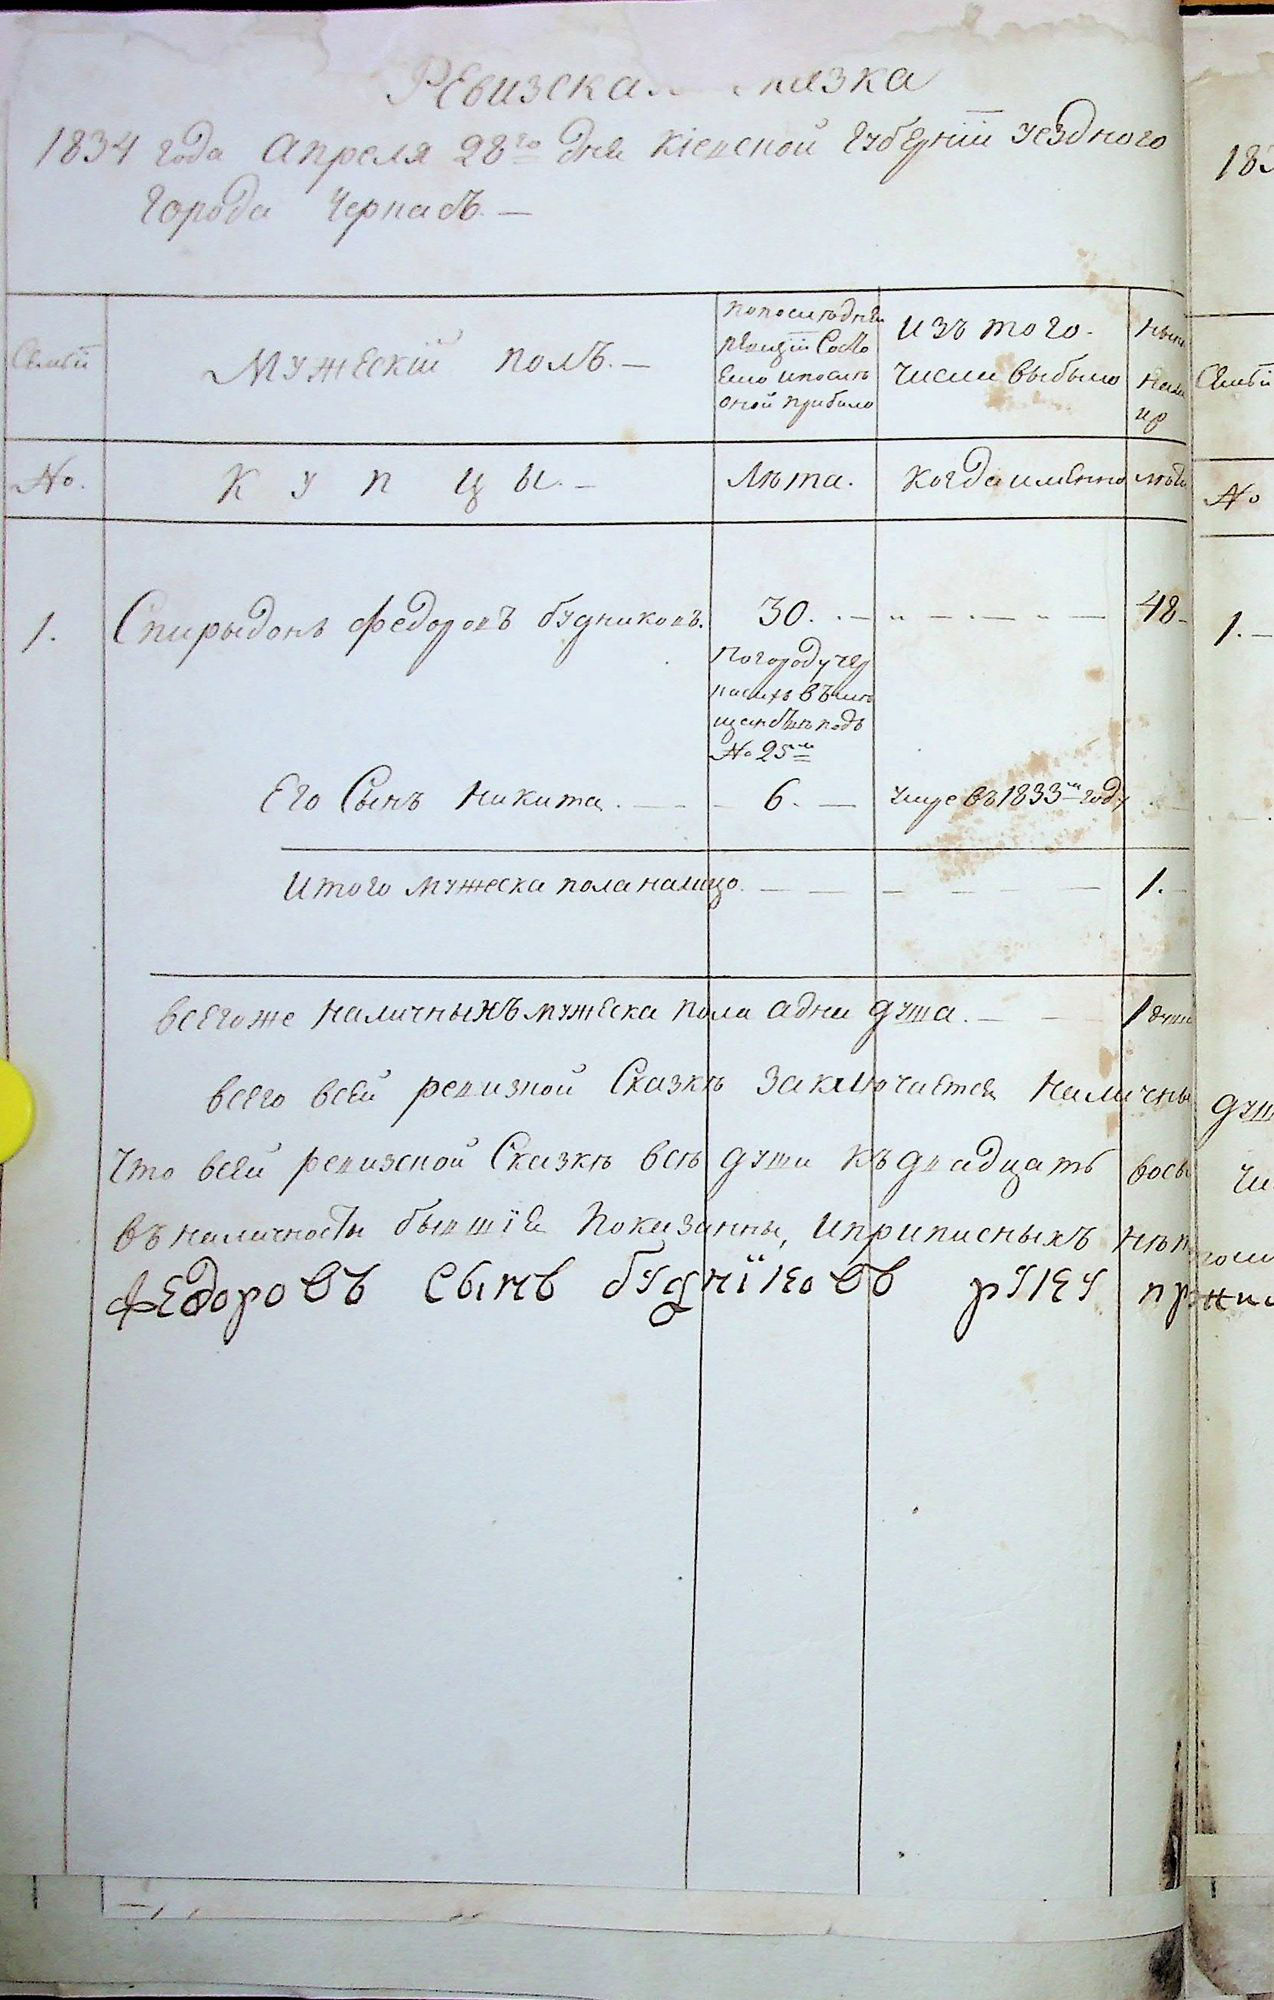 Ревизска сказка
1834 года апреля 28го дня Кіевской Губерніи уездного
города Черкасъ. —
Семьи
Мужескій полъ. —
По последней
ревизіи состо
яло и после
оной прибыло
Изъ того
числа выбыло
ныне
№.
К у п ц ы. —
Лета.
Когда имянно
лета
1.
Спирыдонъ Федоровъ Будниковъ.
30.
48
По городу Чер
касахъ въ ме
щанстве подъ
№ 25м
Его Сынъ Никита.
6.
умре въ 1833м году
Итого мужеска пола налицо.
1.
Всего же наличныхъ мужеска пола адна душа.
1 душ
Всего всей ревизной Сказке заключается наличны
Что всей ревизской Сказке все души къ двадцать вось
въ наличности бывшіе показанны, и приписныхъ нет
Федоровъ сынъ будніковъ руку пр
183
Семьи
№
1. —
душ